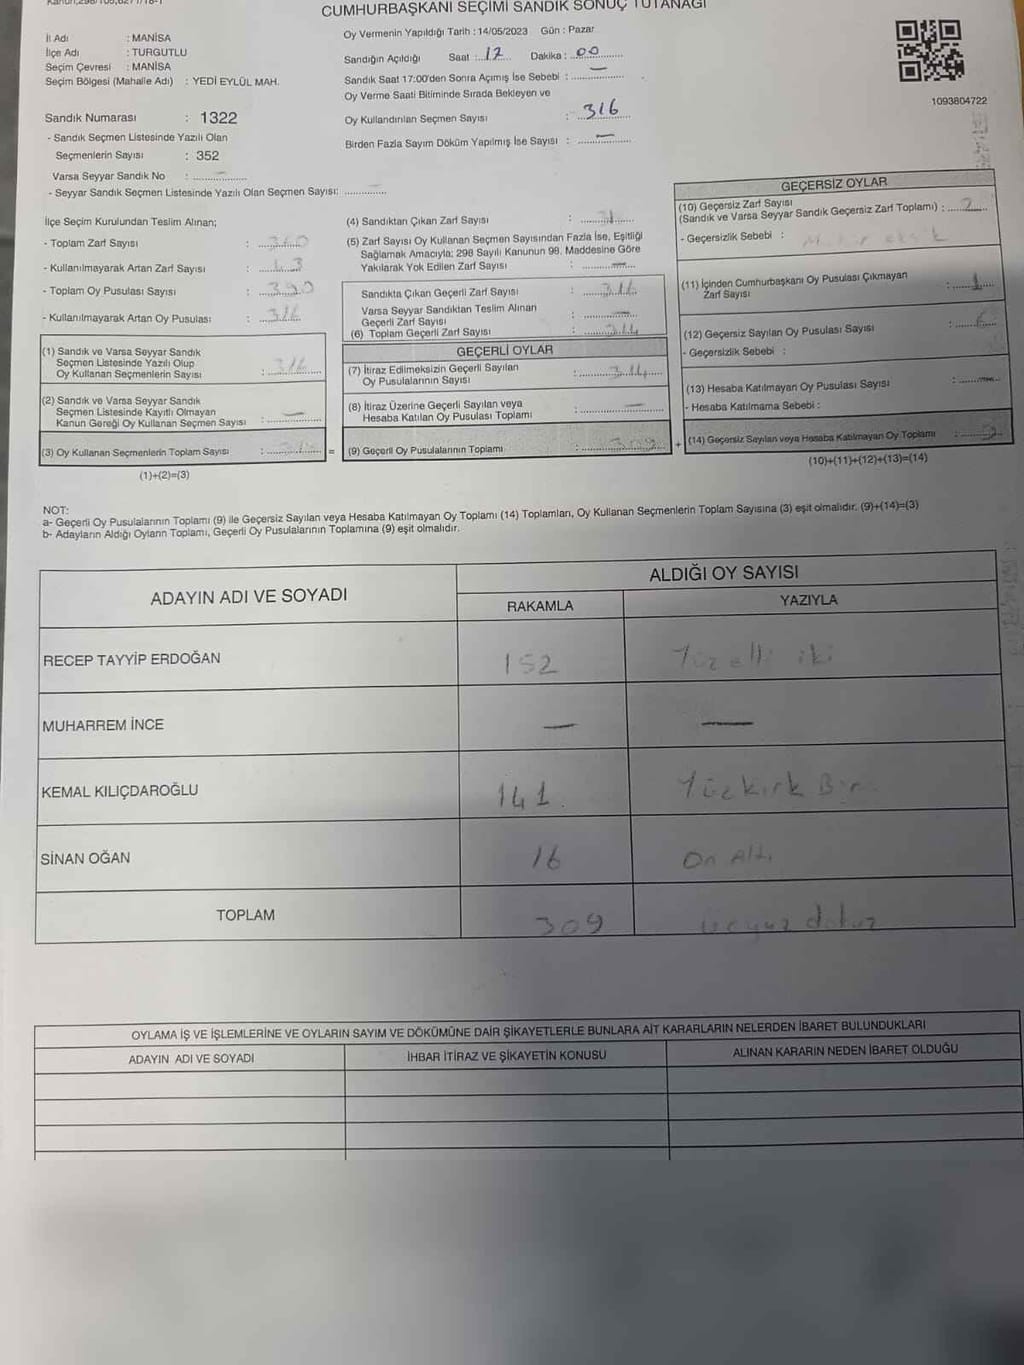 CUMHURBAŞKANI SEÇİMİ SANDIK SONUÇ TUTANAĞI
İl Adı : MANİSA
İlçe Adı : TURGUTLU
Seçim Çevresi : MANİSA
Seçim Bölgesi (Mahalle Adı) : YEDİ EYLÜL MAH.
Oy Vermenin Yapıldığı Tarih : 14/05/2023 Gün : Pazar
Sandığın Açıldığı Saat : 17 Dakika : 00
Sandık Saat 17:00'den Sonra Açımış İse Sebebi : —
Oy Verme Saati Bitiminde Sırada Bekleyen ve
Oy Kullandırılan Seçmen Sayısı : 316
Birden Fazla Sayım Döküm Yapılmış İse Sayısı : —
1093804722
Sandık Numarası : 1322
- Sandık Seçmen Listesinde Yazılı Olan
Seçmenlerin Sayısı : 352
Varsa Seyyar Sandık No :
- Seyyar Sandık Seçmen Listesinde Yazılı Olan Seçmen Sayısı:
İlçe Seçim Kurulundan Teslim Alınan;
- Toplam Zarf Sayısı :
- Kullanılmayarak Artan Zarf Sayısı : 43
- Toplam Oy Pusulası Sayısı :
- Kullanılmayarak Artan Oy Pusulası :
(1) Sandık ve Varsa Seyyar Sandık
Seçmen Listesinde Yazılı Olup
Oy Kullanan Seçmenlerin Sayısı : 316
(2) Sandık ve Varsa Seyyar Sandık
Seçmen Listesinde Kayıtlı Olmayan
Kanun Gereği Oy Kullanan Seçmen Sayısı : —
(3) Oy Kullanan Seçmenlerin Toplam Sayısı :
(1)+(2)=(3)
(4) Sandıktan Çıkan Zarf Sayısı :
(5) Zarf Sayısı Oy Kullanan Seçmen Sayısından Fazla İse, Eşitliği
Sağlamak Amacıyla; 298 Sayılı Kanunun 98. Maddesine Göre
Yakılarak Yok Edilen Zarf Sayısı : —
Sandıkta Çıkan Geçerli Zarf Sayısı :
Varsa Seyyar Sandıktan Teslim Alınan
Geçerli Zarf Sayısı : —
(6) Toplam Geçerli Zarf Sayısı : 314
GEÇERLİ OYLAR
(7) İtiraz Edilmeksizin Geçerli Sayılan
Oy Pusulalarının Sayısı :
(8) İtiraz Üzerine Geçerli Sayılan veya
Hesaba Katılan Oy Pusulası Toplamı : —
(9) Geçerli Oy Pusulalarının Toplamı : 309
GEÇERSİZ OYLAR
(10) Geçersiz Zarf Sayısı
(Sandık ve Varsa Seyyar Sandık Geçersiz Zarf Toplamı) : 2
- Geçersizlik Sebebi : Mühür eksik
(11) İçinden Cumhurbaşkanı Oy Pusulası Çıkmayan
Zarf Sayısı : 1
(12) Geçersiz Sayılan Oy Pusulası Sayısı :
- Geçersizlik Sebebi :
(13) Hesaba Katılmayan Oy Pusulası Sayısı : —
- Hesaba Katılmama Sebebi :
(14) Geçersiz Sayılan veya Hesaba Katılmayan Oy Toplamı :
(10)+(11)+(12)+(13)=(14)
NOT:
a- Geçerli Oy Pusulalarının Toplamı (9) ile Geçersiz Sayılan veya Hesaba Katılmayan Oy Toplamı (14) Toplamları, Oy Kullanan Seçmenlerin Toplam Sayısına (3) eşit olmalıdır. (9)+(14)=(3)
b- Adayların Aldığı Oyların Toplamı, Geçerli Oy Pusulalarının Toplamına (9) eşit olmalıdır.
ADAYIN ADI VE SOYADI
ALDIĞI OY SAYISI
RAKAMLA YAZIYLA
RECEP TAYYİP ERDOĞAN 152 Yüz elli iki
MUHARREM İNCE — —
KEMAL KILIÇDAROĞLU 141 Yüzkırk Bir
SİNAN OĞAN 16 On Altı
TOPLAM 309 üçyüz dokuz
OYLAMA İŞ VE İŞLEMLERİNE VE OYLARIN SAYIM VE DÖKÜMÜNE DAİR ŞİKAYETLERLE BUNLARA AİT KARARLARIN NELERDEN İBARET BULUNDUKLARI
ADAYIN ADI VE SOYADI İHBAR İTİRAZ VE ŞİKAYETİN KONUSU ALINAN KARARIN NEDEN İBARET OLDUĞU